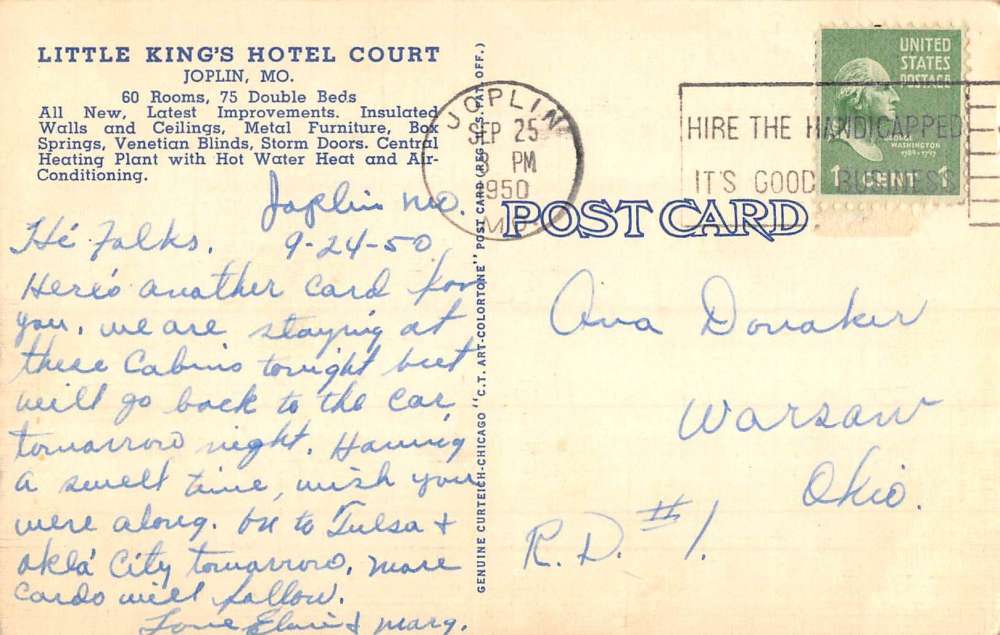 LITTLE KING'S HOTEL COURT
JOPLIN, MO.
60 Rooms, 75 Double Beds
All New, Latest Improvements. Insulated
Walls and Ceilings, Metal Furniture, Box
Springs, Venetian Blinds, Storm Doors. Central
Heating Plant with Hot Water Heat and Air-
Conditioning.
Joplin Mo.
9-24-50
Hi Folks,
Here's another card for
you, we are staying at
these Cabins tonight but
will go back to the car
tomarrow night. Having
a swell time, wish you
were along. on to Tulsa +
okla' City tomarrow. more
cards will follow.
Love Elsie & Marg.
GENUINE CURTEICH-CHICAGO "C.T. ART-COLORTONE" POST CARD (REG. U.S. PAT. OFF.)
JOPLIN
SEP 25
PM
1950
MO
HIRE THE HANDICAPPED
IT'S GOOD BUSINESS
UNITED
STATES
POSTAGE
GEORGE
WASHINGTON
1789-1797
1 CENT 1
POST CARD
Ava Donaker
Warsaw
Ohio.
R.D. #1.